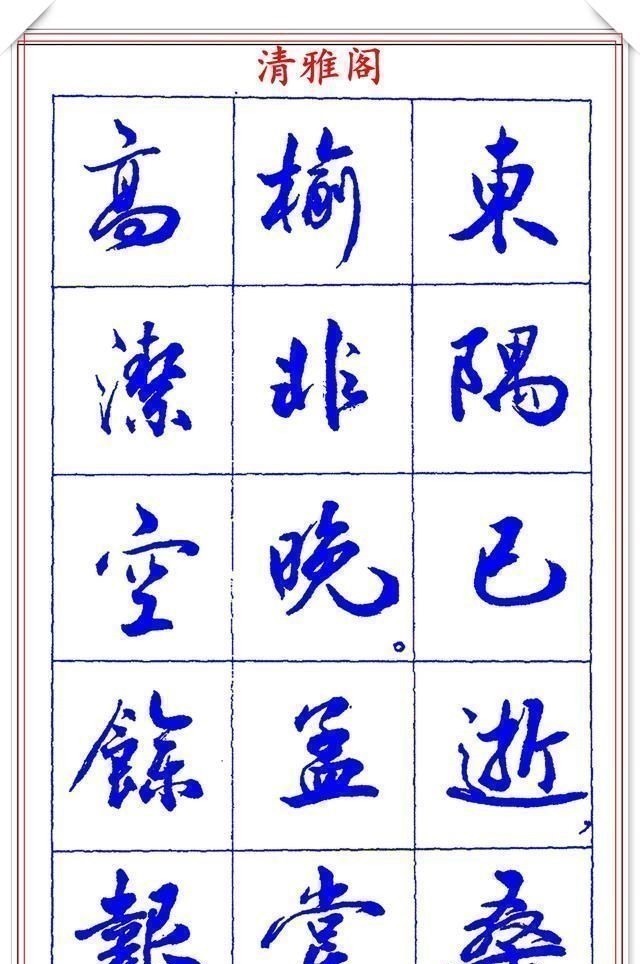 清雅阁
東隅已逝,桑
榆非晚。孟嘗
高潔空餘報